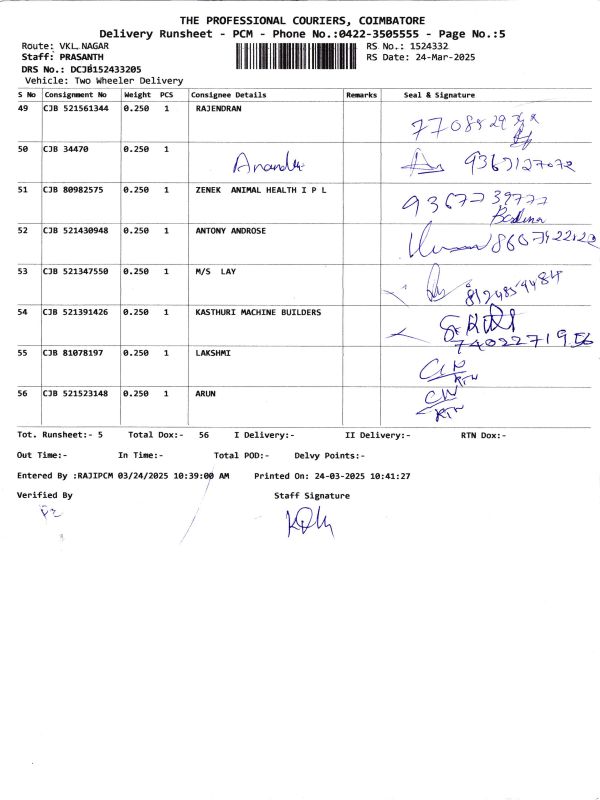 THE PROFESSIONAL COURIERS, COIMBATORE
Delivery Runsheet - PCM - Phone No.:0422-3505555 - Page No.:5
Route: VKL NAGAR RS No.: 1524332
Staff: PRASANTH RS Date: 24-Mar-2025
DRS No.: DCJB152433205
Vehicle: Two Wheeler Delivery
S No Consignment No Weight PCS Consignee Details Remarks Seal & Signature
49 CJB 521561344 0.250 1 RAJENDRAN
50 CJB 34470 0.250 1
51 CJB 80982575 0.250 1 ZENEK ANIMAL HEALTH I P L
52 CJB 521430948 0.250 1 ANTONY ANDROSE
53 CJB 521347550 0.250 1 M/S LAY
8124859484
54 CJB 521391426 0.250 1 KASTHURI MACHINE BUILDERS
7402271956
55 CJB 81078197 0.250 1 LAKSHMI
RTN
56 CJB 521523148 0.250 1 ARUN
RTN
Tot. Runsheet:- 5 Total Dox:- 56 I Delivery:- II Delivery:- RTN Dox:-
Out Time:- In Time:- Total POD:- Delvy Points:-
Entered By :RAJIPCM 03/24/2025 10:39:00 AM Printed On: 24-03-2025 10:41:27
Verified By Staff Signature